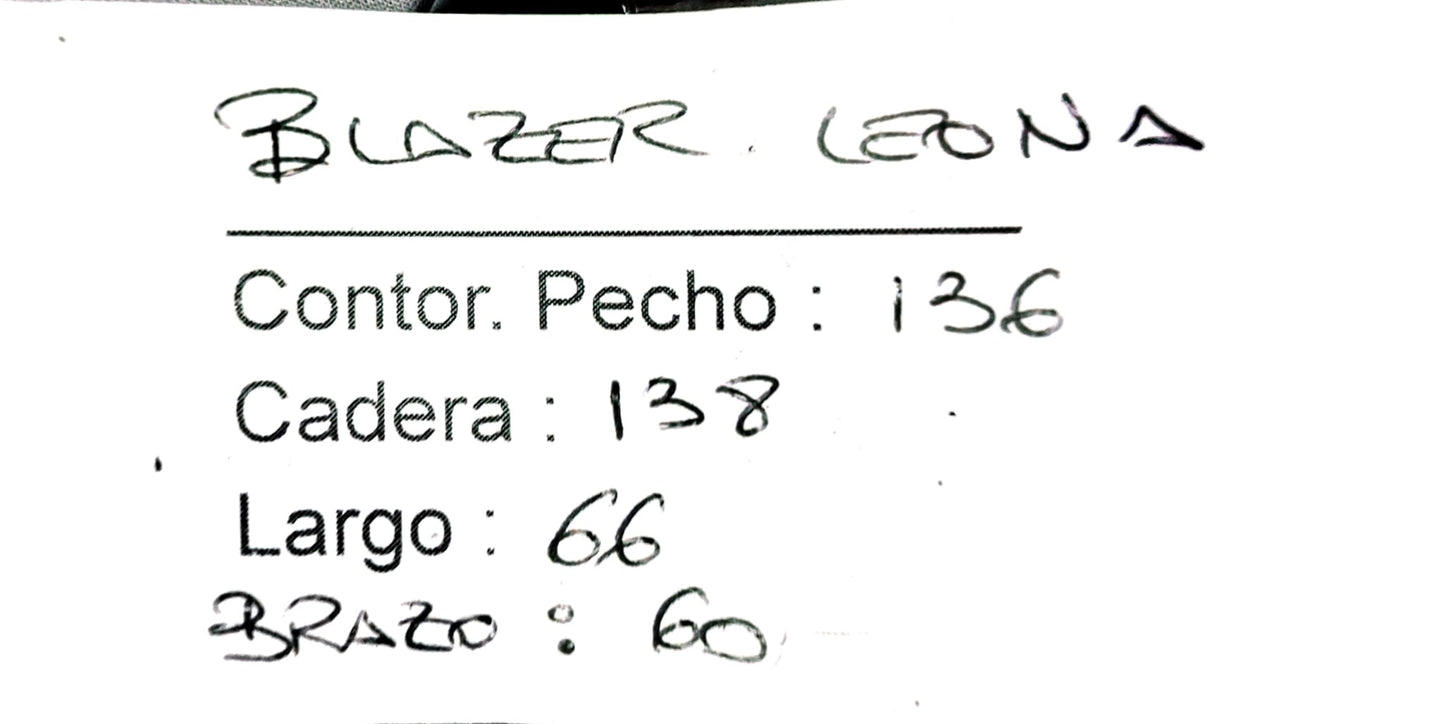 BLAZER. LEONA
Contor. Pecho : 136
Cadera : 138
Largo : 66
BRAZO : 60